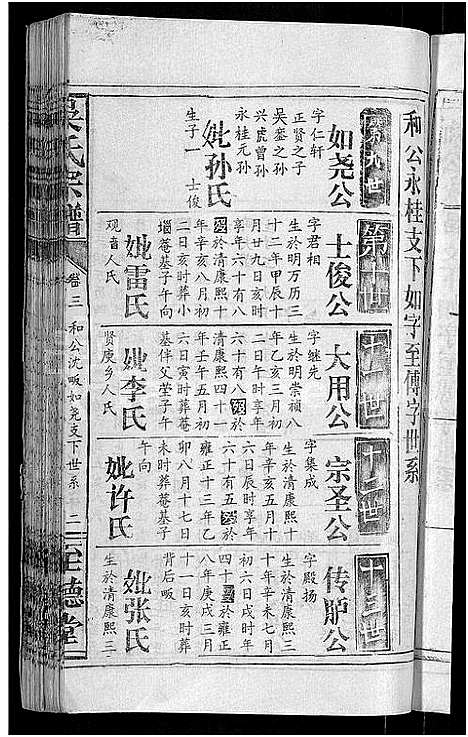 和公永桂支下如字至傳字世系
第九世
如尧公
字仁轩
正贤之子
吴銮之孙
兴虎曾孙
永桂元孙
妣孙氏
生子一 士俊
第十世
士俊公
字君相
生於明万历三
十二年甲辰十
月廿九日亥时
享年六十有八
殁於清康熙十
年辛亥八月初
二日亥时葬小
塸菴基子午向
妣雷氏
观音人氏
十一世
大用公
字继先
生於明崇祯八
年乙亥三月初
二日午时享年
六十有八殁於
清康熙四十一
年壬午五月初
六日寅时葬菴
基伴父茔子午
妣李氏
贤庾乡人氏
十二世
宗圣公
字集成
生於清康熙十
年辛亥五月十
六日辰时享年
六十有五殁於
雍正十三年乙
卯八月十七日
未时葬菴基子
午向
妣许氏
十三世
传胪公
字殿扬
生於清康熙三
十年辛未七月
初六日戌时年
四十殁於雍正
八年庚戌三月
十一日亥时葬
背后畈
妣张氏
生於清康熙三
吴氏宗譜
卷三 和公沈畈如尧支下世系 二
至德堂